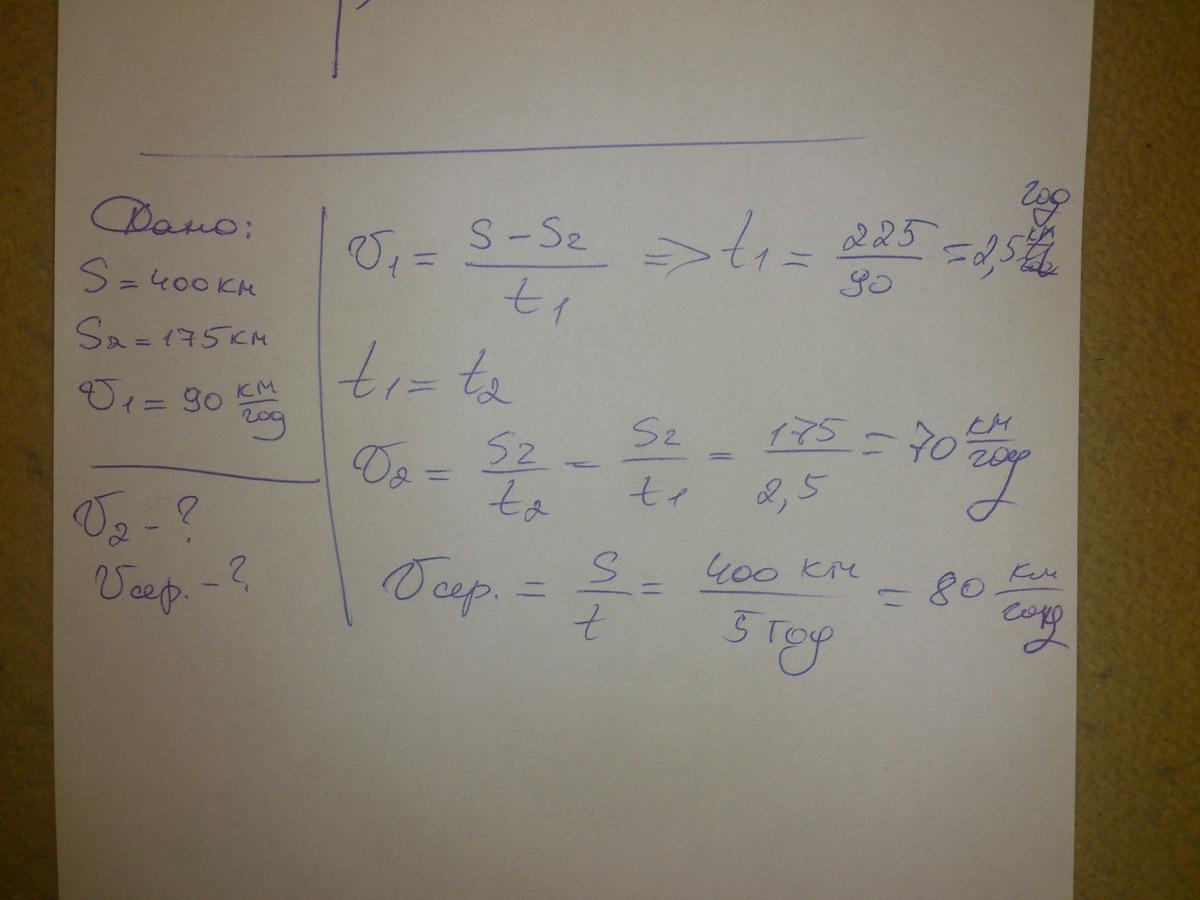 Дано:
S = 400 км
S2 = 175 км
V1 = 90 км/год
V2 - ?
Vсер. - ?
V1 = (S - S2)/t1 => t1 = 225/90 = 2,5 год
t1 = t2
V2 = S2/t2 = S2/t1 = 175/2,5 = 70 км/год
Vсер. = S/t = 400 км/5 год = 80 км/год